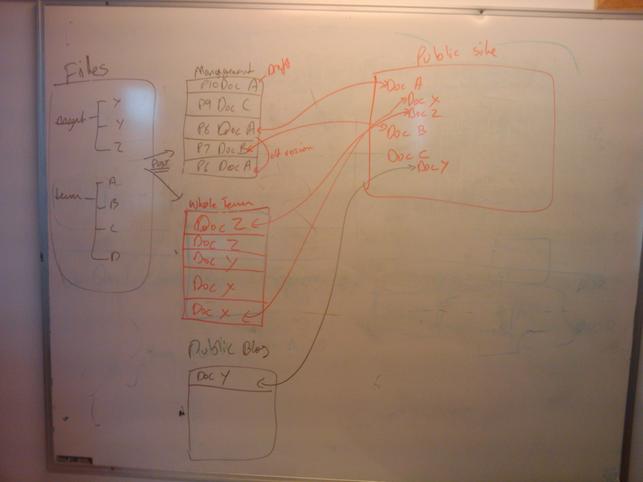 Files
Y
Y
Z
Team
A
B
C
D
Post
Management
Draft
P10 Doc A
P9 Doc C
P8 Doc A
P7 Doc B
P6 Doc A
Whole Team
Doc Z
Doc Z
Doc Y
Doc X
Doc X
Public Blog
Doc Y
Public site
Doc A
Doc X
Doc Z
Doc B
Doc C
Doc Y